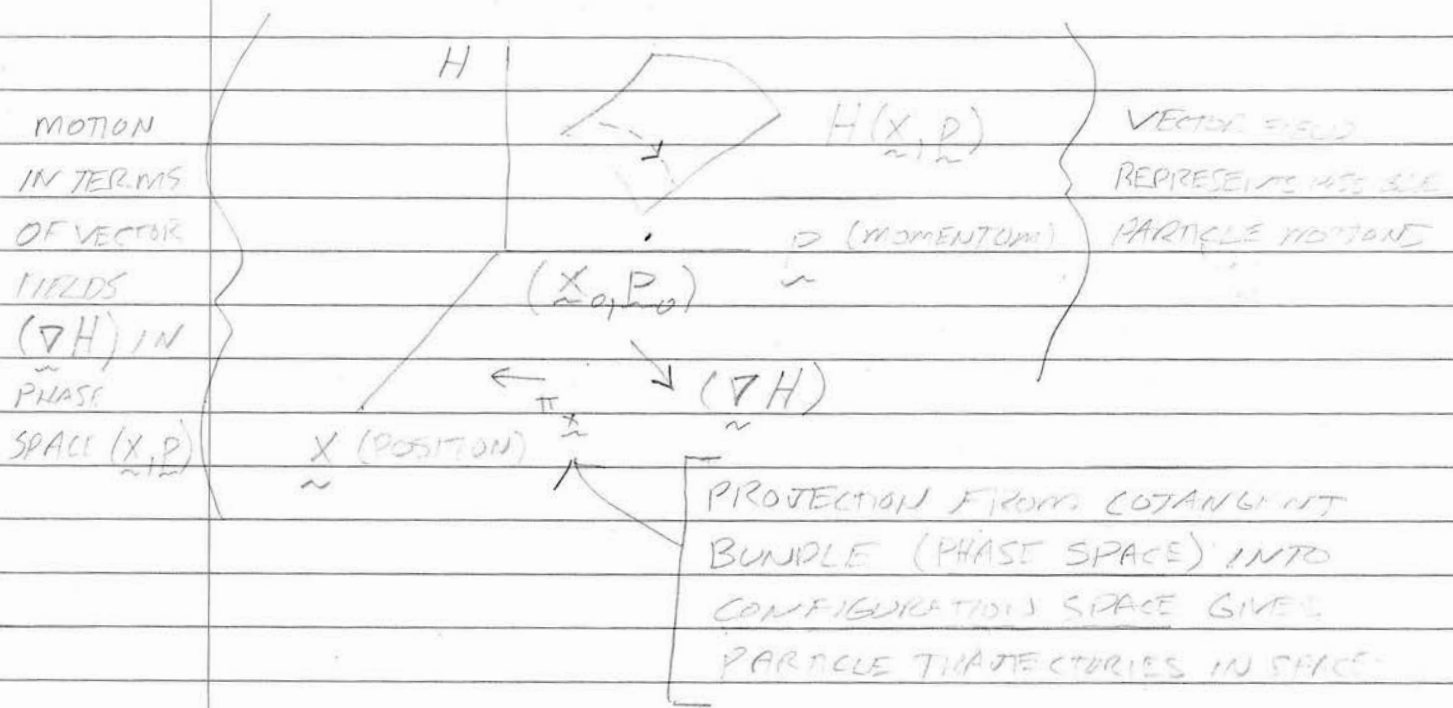 MOTION
IN TERMS
OF VECTOR
FIELDS
(∇H) IN
PHASE
SPACE (X, P)
H
H(X, P)
P (MOMENTUM)
(X₀, P₀)
(∇H)
π_X
X (POSITION)
VECTOR FIELD
REPRESENTS POSSIBLE
PARTICLE MOTIONS
PROJECTION FROM COTANGENT
BUNDLE (PHASE SPACE) INTO
CONFIGURATION SPACE GIVES
PARTICLE TRAJECTORIES IN SPACE